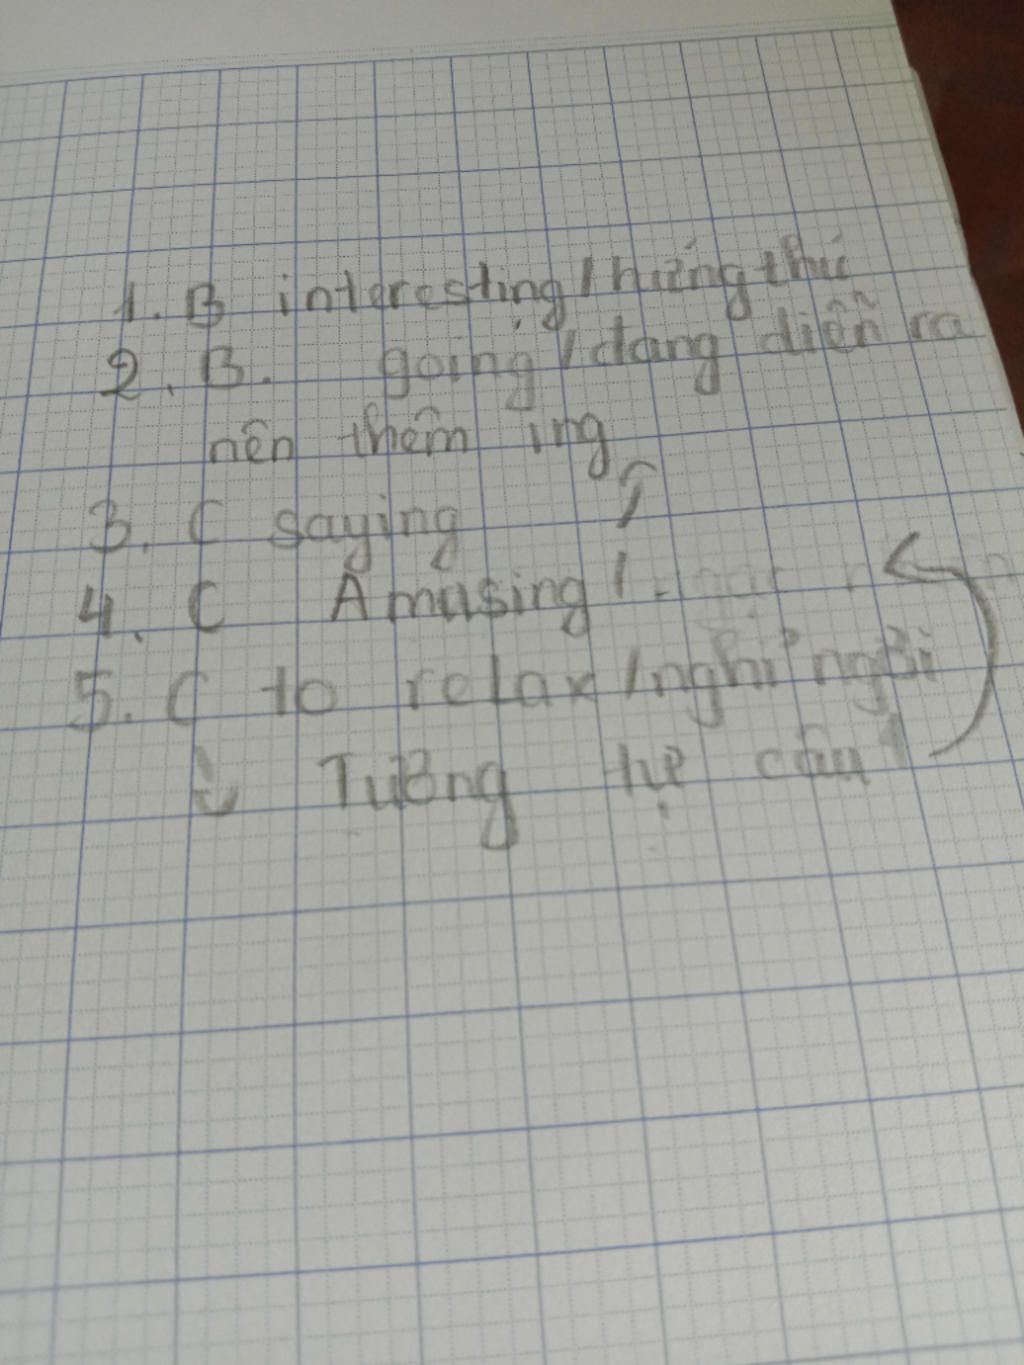 1. B interesting / hứng thú
2. B. going / đang diễn ra
nên thêm ing
3. C saying
4. C Amusing
5. C to relax / nghỉ ngơi
Tương tự câu